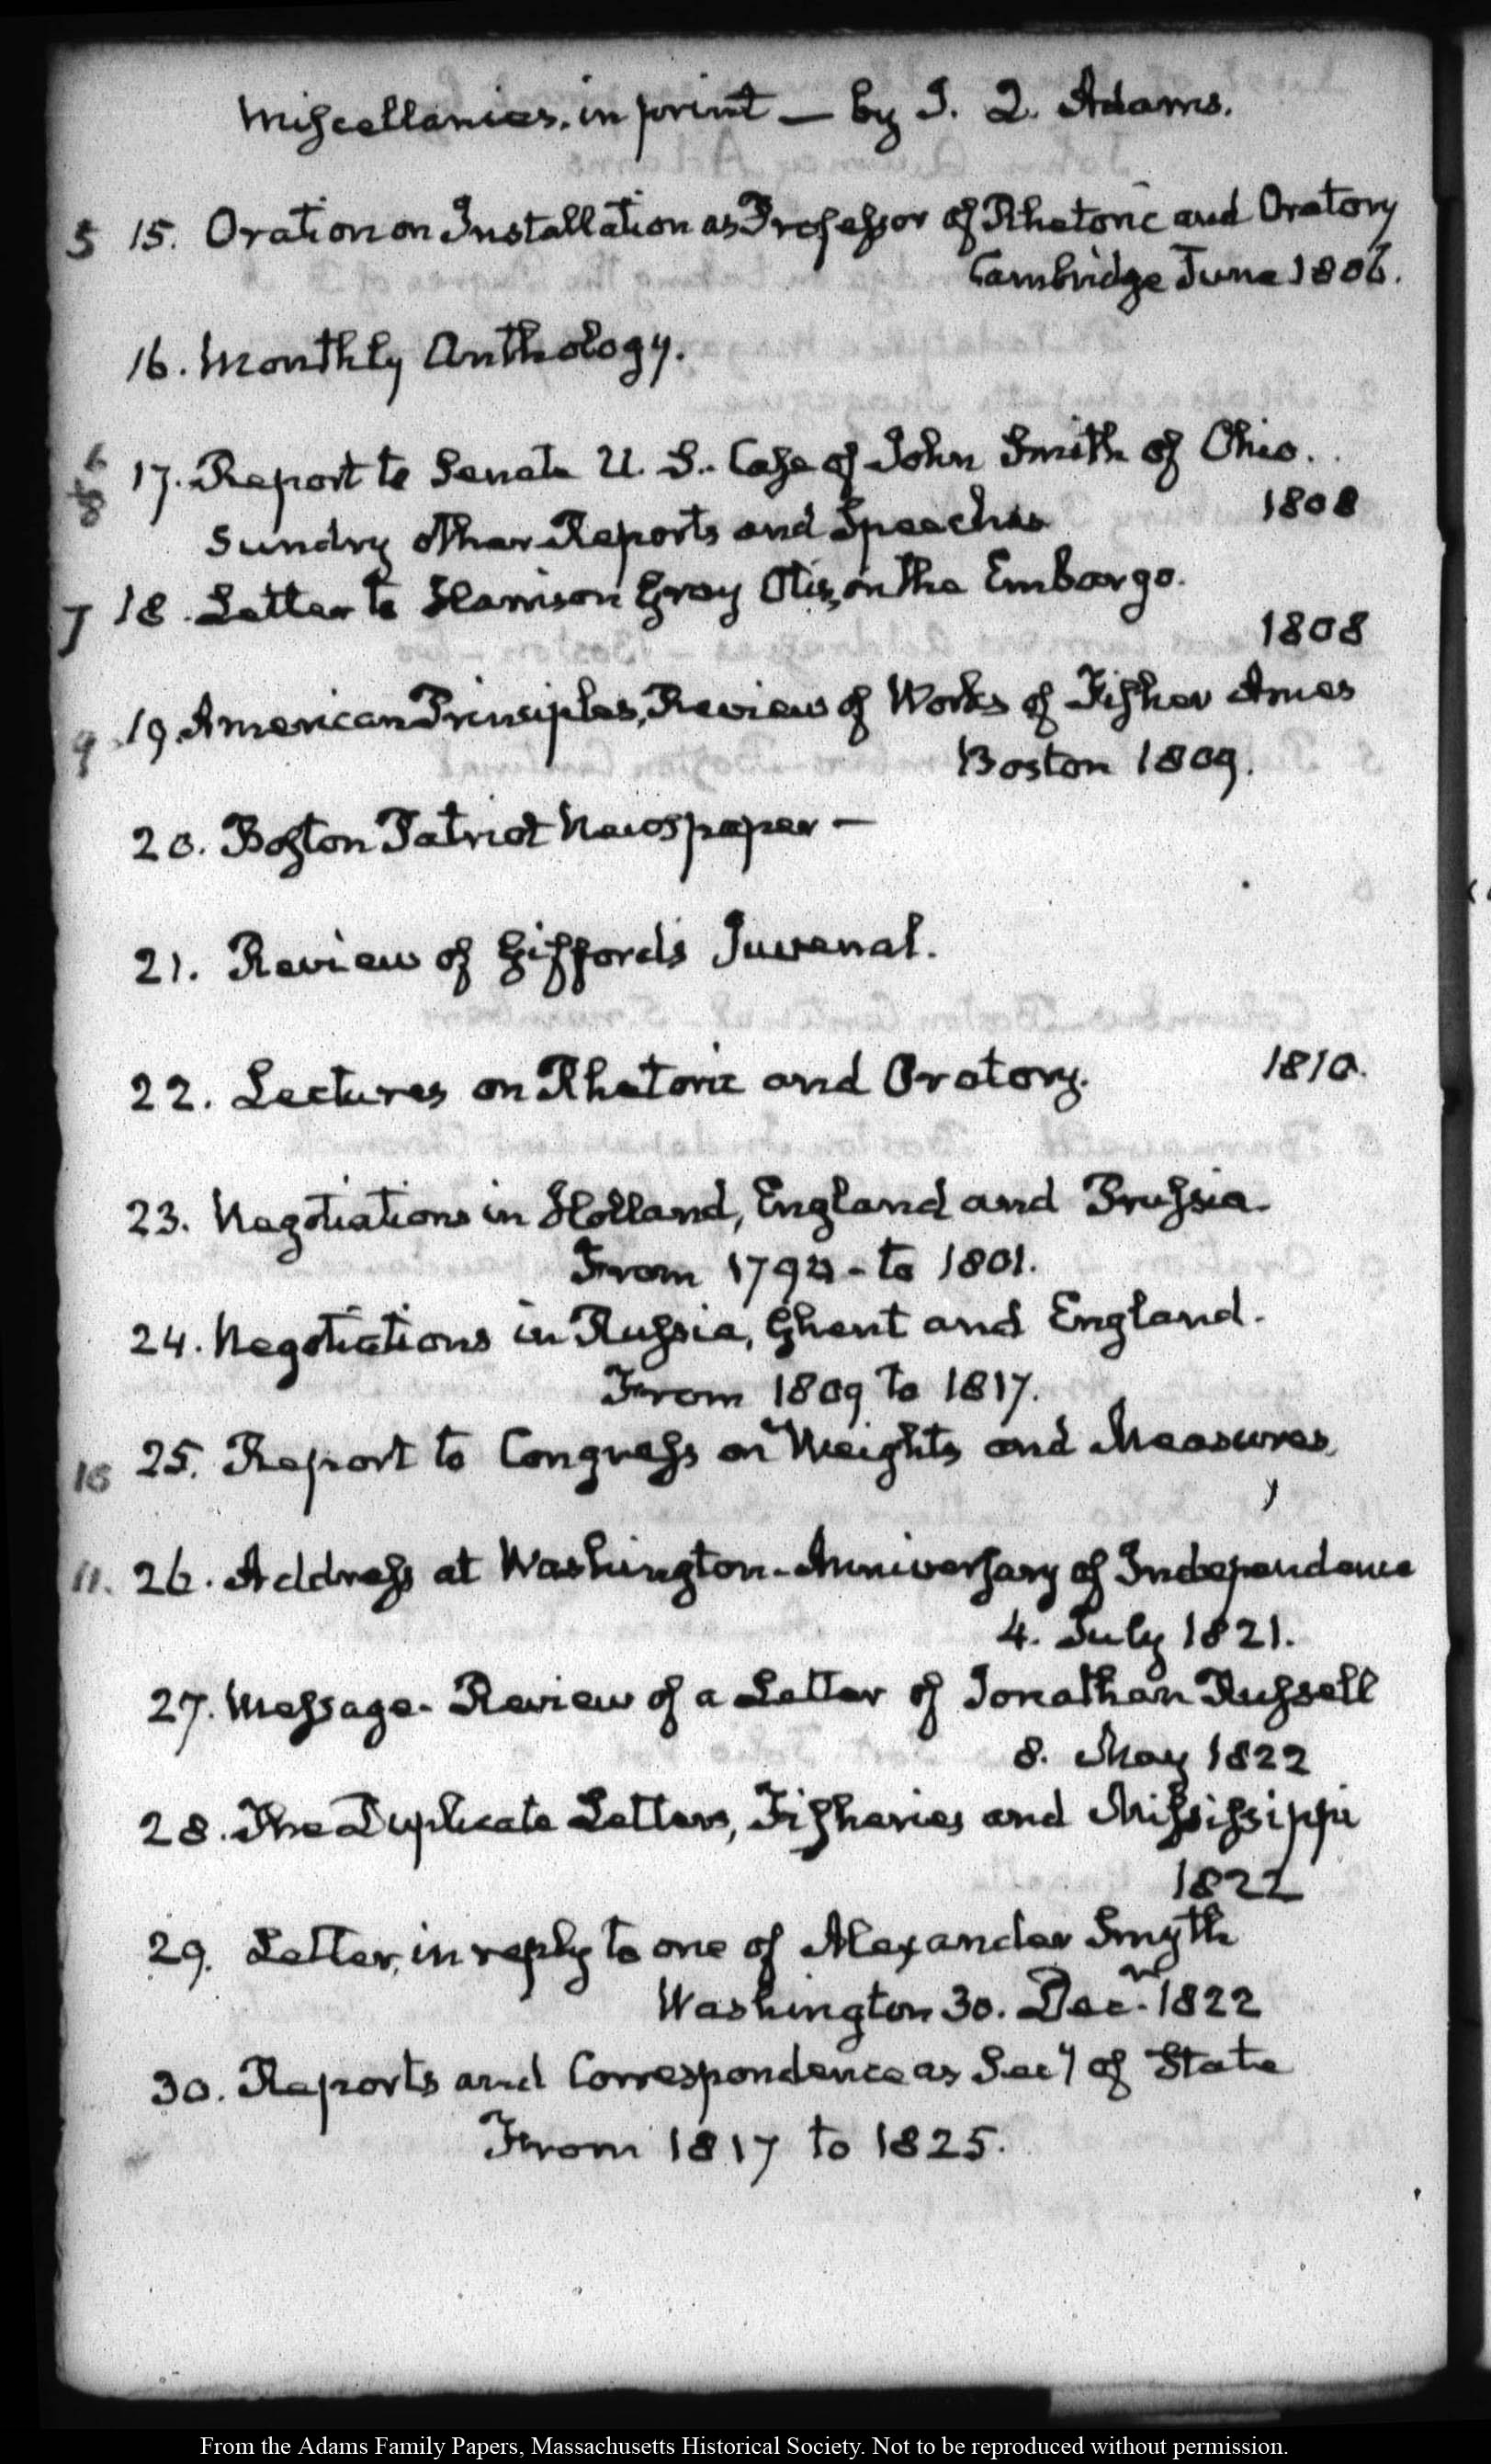 Miscellanies, in print — by J. Q. Adams.
5 15. Oration on Installation as Professor of Rhetoric and Oratory
Cambridge June 1806.
16. Monthly Anthology.
6
8
17. Report to Senate U. S. Case of John Smith of Ohio.
1808
Sundry other Reports and Speeches
7 18. Letter to Harrison Gray Otis, on the Embargo.
1808
9 19. American Principles, Review of Works of Fisher Ames
Boston 1809.
20. Boston Patriot Newspaper —
21. Review of Gifford's Juvenal.
22. Lectures on Rhetoric and Oratory. 1810.
23. Negotiations in Holland, England and Prussia.
From 1794 - to 1801.
24. Negotiations in Russia, Ghent and England.
From 1809 to 1817.
10 25. Report to Congress on Weights and Measures,
11. 26. Address at Washington - Anniversary of Independence
4. July 1821.
27. Message - Review of a Letter of Jonathan Russell
8. May 1822
28. The Duplicate Letters, Fisheries and Mississippi
1822
29. Letter, in reply to one of Alexander Smyth
Washington 30. Decr. 1822
30. Reports and Correspondence as Secy of State
From 1817 to 1825.
From the Adams Family Papers, Massachusetts Historical Society. Not to be reproduced without permission.